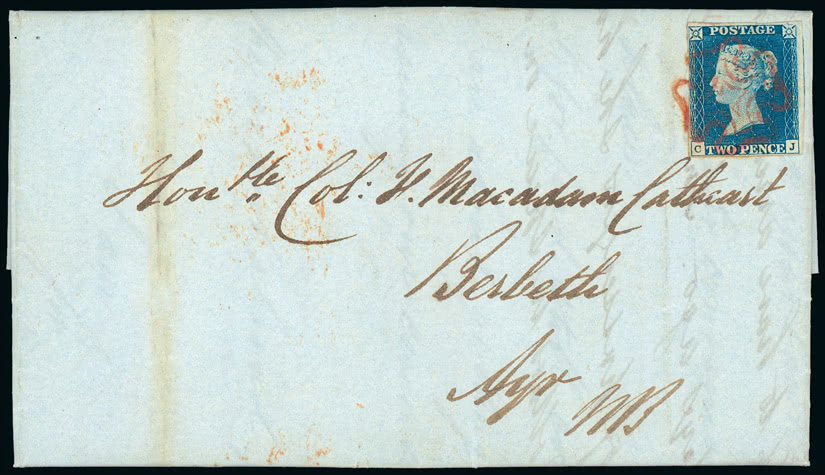 POSTAGE
TWO PENCE
C J
Honble Col: F. Macadam Cathcart
Berbeth
Ayr
NB